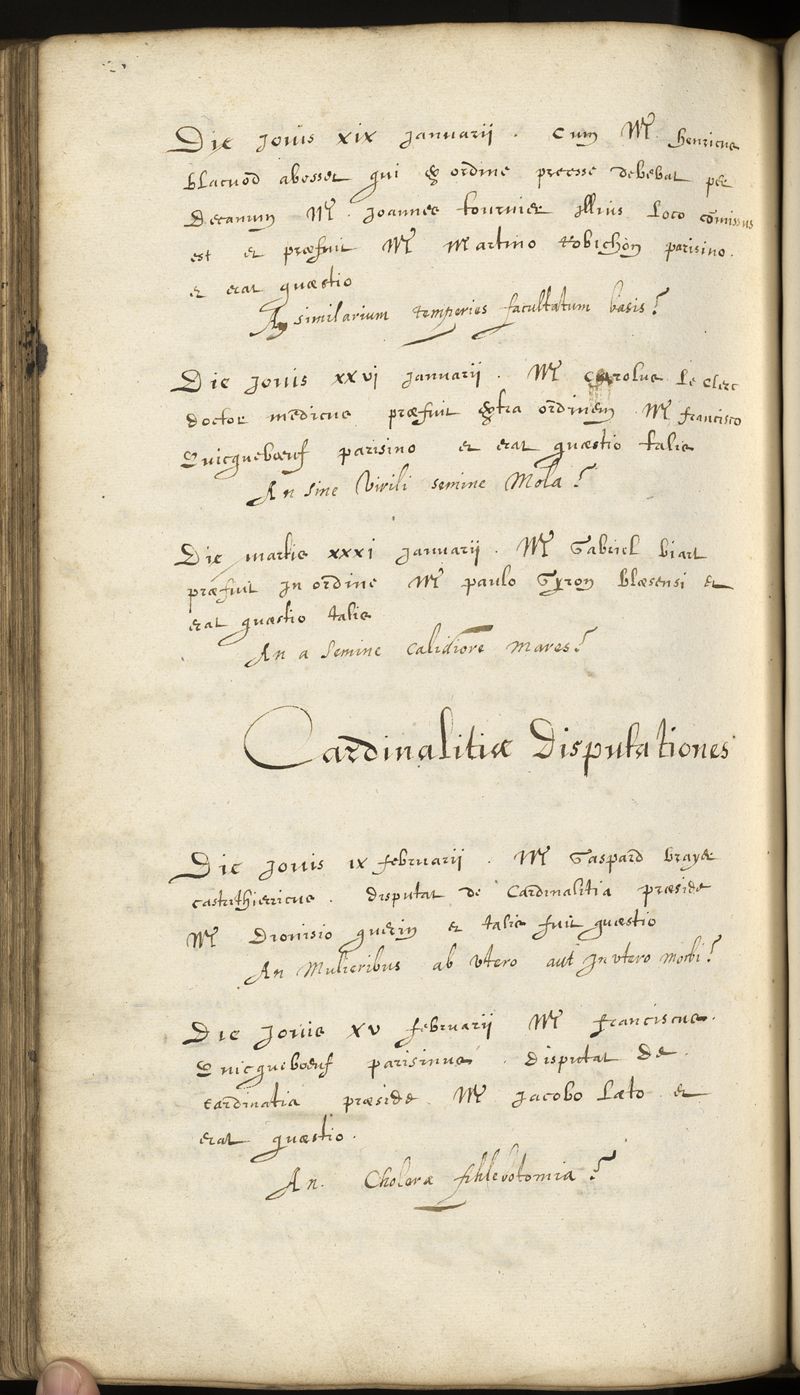 Die Jovis xix Januarii . Cum Mr Henricus
Blacuod abesset qui ex ordine preesse debebat per
Decanum Mr . Joannes tournier illius loco cōmissus
est et præfuit Mr Martino Robichon parisino .
et erat quæstio
An similarium temperies facultatum basis ?
Die Jovis xxvj Januarii . Mr Carolus Le Clerc
doctor medicus præfuit extra ordinem Mr francisco
Quicquebœuf parisino et erat quæstio talis
An sine Virili semine Mola ?
Die martis xxxi Januarii . Mr Gabriel biart
præfuit in ordine Mr paulo Gyron blæsensi et
erat quæstio talis
An a Semine Calidiore mares ?
Cardinalitiæ Disputationes
Die Jovis ix februarii . Mr Gaspard brayer
castrithierricus . disputat de Cardinalitia præside
Mr Dionisio guerin et talis fuit quæstio
An Mulieribus ab Vtero aut in vtero morbi ?
Die Jovis xv februarii Mr franciscus .
Quicquebœuf parisinus . disputat de .
Cardinatia præside Mr Jacobo Læto et
erat quæstio .
An . Choleræ phlebotomia ?